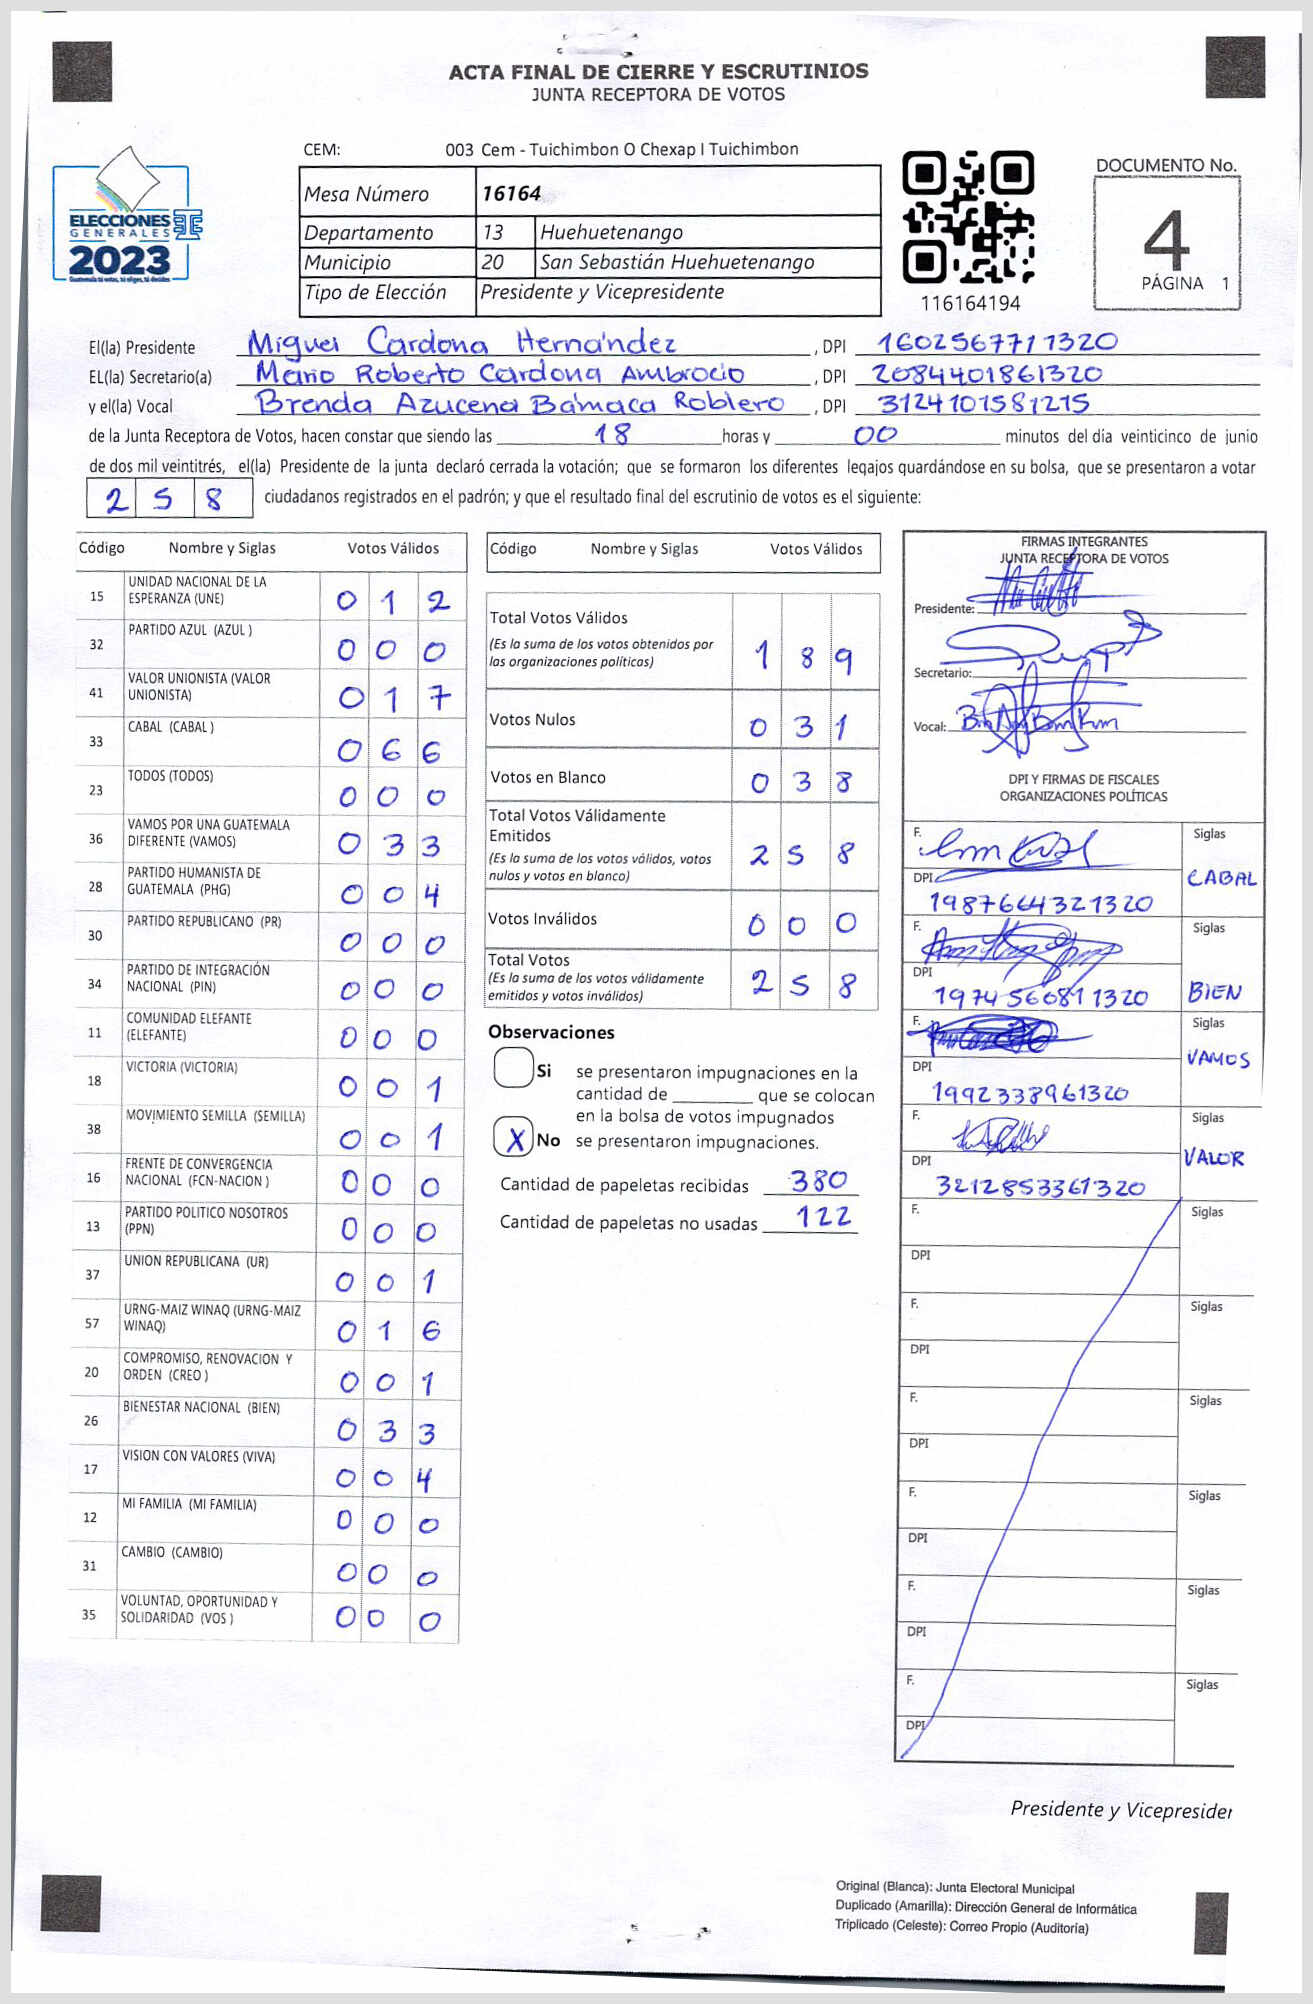 ACTA FINAL DE CIERRE Y ESCRUTINIOS
JUNTA RECEPTORA DE VOTOS
CEM: 003 Cem - Tuichimbon O Chexap I Tuichimbon
Mesa Número 16164
Departamento 13 Huehuetenango
Municipio 20 San Sebastián Huehuetenango
Tipo de Elección Presidente y Vicepresidente
ELECCIONES
GENERALES
2023
116164194
DOCUMENTO No.
4
PÁGINA 1
El(la) Presidente Miguel Cardona Hernández, DPI 1602567711320
EL(la) Secretario(a) Mario Roberto Cardona Ambrocio, DPI 2084401861320
y el(la) Vocal Brenda Azucena Bámaca Roblero, DPI 3124101581215
de la Junta Receptora de Votos, hacen constar que siendo las 18 horas y 00 minutos del día veinticinco de junio
de dos mil veintitrés, el(la) Presidente de la junta declaró cerrada la votación; que se formaron los diferentes legajos guardándose en su bolsa, que se presentaron a votar
258 ciudadanos registrados en el padrón; y que el resultado final del escrutinio de votos es el siguiente:
Código Nombre y Siglas Votos Válidos
15 UNIDAD NACIONAL DE LA ESPERANZA (UNE) 012
32 PARTIDO AZUL (AZUL ) 000
41 VALOR UNIONISTA (VALOR UNIONISTA) 017
33 CABAL (CABAL ) 066
23 TODOS (TODOS) 000
36 VAMOS POR UNA GUATEMALA DIFERENTE (VAMOS) 033
28 PARTIDO HUMANISTA DE GUATEMALA (PHG) 004
30 PARTIDO REPUBLICANO (PR) 000
34 PARTIDO DE INTEGRACIÓN NACIONAL (PIN) 000
11 COMUNIDAD ELEFANTE (ELEFANTE) 000
18 VICTORIA (VICTORIA) 001
38 MOVIMIENTO SEMILLA (SEMILLA) 001
16 FRENTE DE CONVERGENCIA NACIONAL (FCN-NACION ) 000
13 PARTIDO POLITICO NOSOTROS (PPN) 000
37 UNION REPUBLICANA (UR) 001
57 URNG-MAIZ WINAQ (URNG-MAIZ WINAQ) 016
20 COMPROMISO, RENOVACION Y ORDEN (CREO ) 001
26 BIENESTAR NACIONAL (BIEN) 033
17 VISION CON VALORES (VIVA) 004
12 MI FAMILIA (MI FAMILIA) 000
31 CAMBIO (CAMBIO) 000
35 VOLUNTAD, OPORTUNIDAD Y SOLIDARIDAD (VOS ) 000
Código Nombre y Siglas Votos Válidos
Total Votos Válidos
(Es la suma de los votos obtenidos por
las organizaciones políticas) 189
Votos Nulos 031
Votos en Blanco 038
Total Votos Válidamente
Emitidos
(Es la suma de los votos válidos, votos
nulos y votos en blanco) 258
Votos Inválidos 000
Total Votos
(Es la suma de los votos válidamente
emitidos y votos inválidos) 258
Observaciones
Si se presentaron impugnaciones en la
cantidad de ________ que se colocan
en la bolsa de votos impugnados
X No se presentaron impugnaciones.
Cantidad de papeletas recibidas 380
Cantidad de papeletas no usadas 122
FIRMAS INTEGRANTES
JUNTA RECEPTORA DE VOTOS
Presidente:
Secretario:
Vocal:
DPI Y FIRMAS DE FISCALES
ORGANIZACIONES POLÍTICAS
F. Siglas
DPI CABAL
1987664321320
F. Siglas
DPI
1974560811320 BIEN
F. Siglas
DPI VAMOS
1992338961320
F. Siglas
DPI VALOR
3212853361320
F. Siglas
DPI
F. Siglas
DPI
F. Siglas
DPI
F. Siglas
DPI
F. Siglas
DPI
F. Siglas
DPI
Presidente y Vicepresider
Original (Blanca): Junta Electoral Municipal
Duplicado (Amarilla): Dirección General de Informática
Triplicado (Celeste): Correo Propio (Auditoría)